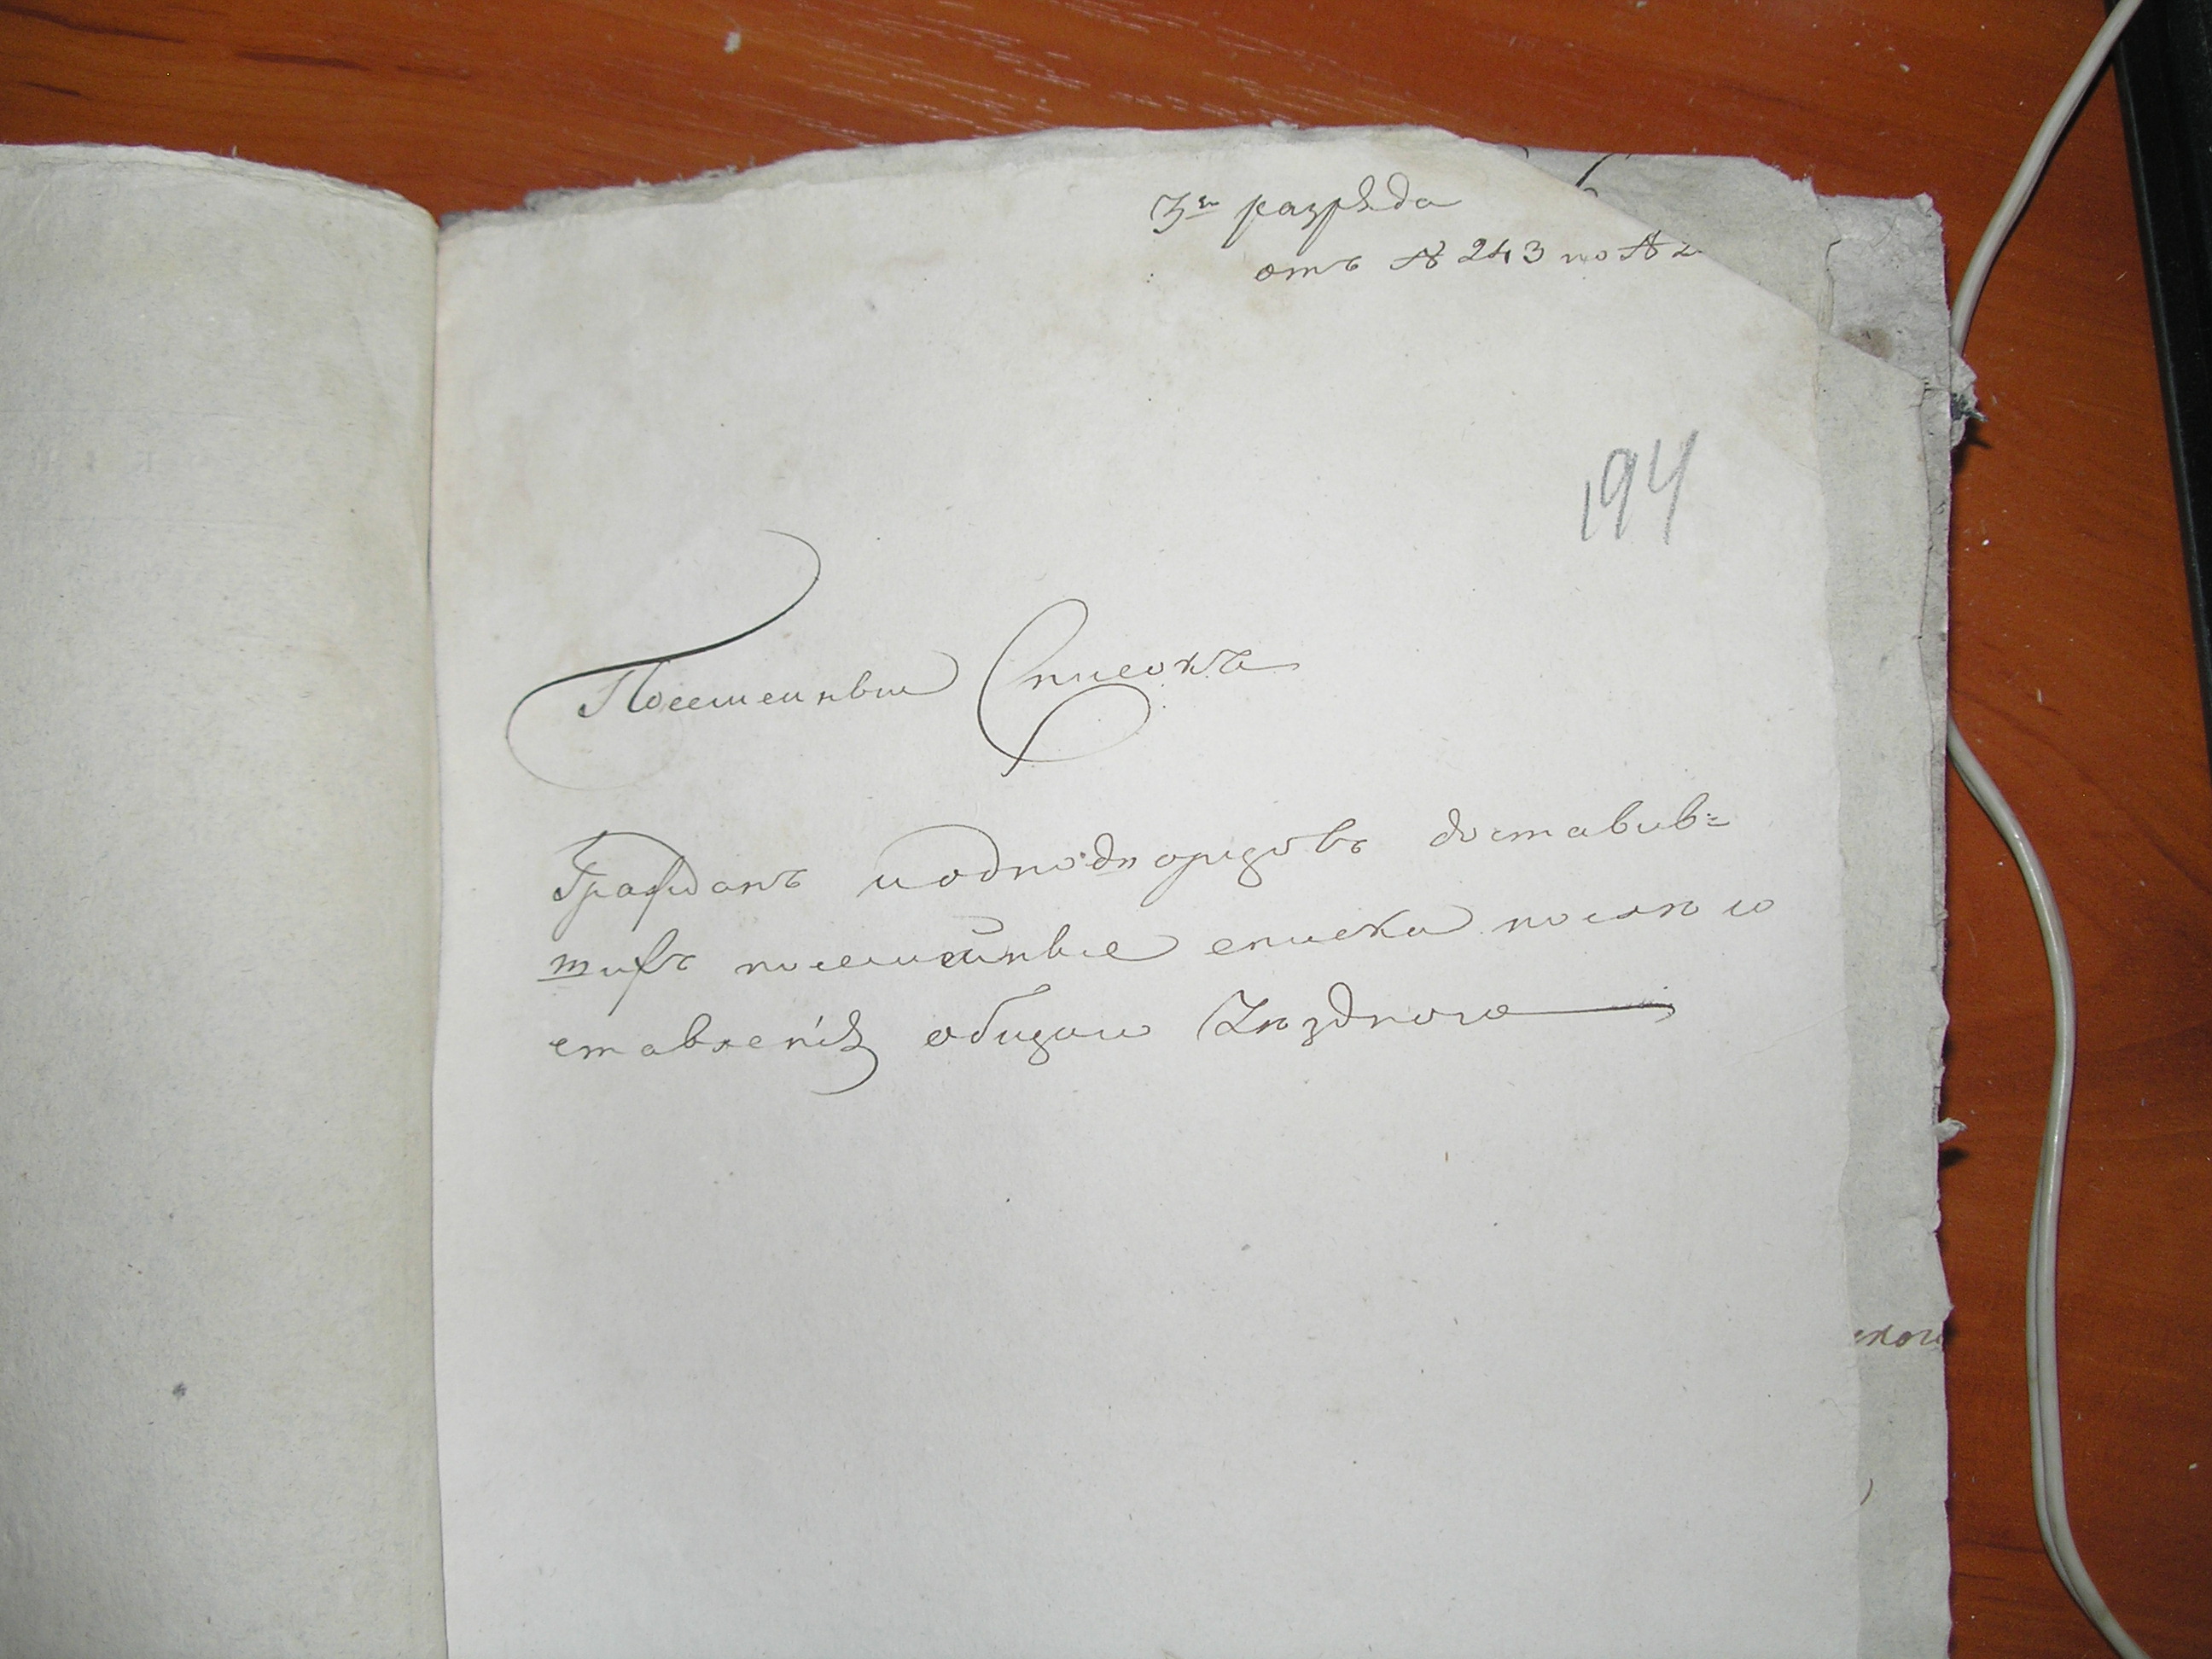 3го разряда
отъ № 243 по № 2
194
Посемейный Списокъ
Гражданъ и однодворцовъ доставив=
шихъ посемейные списки после со
ставленія общаго Уезднаго